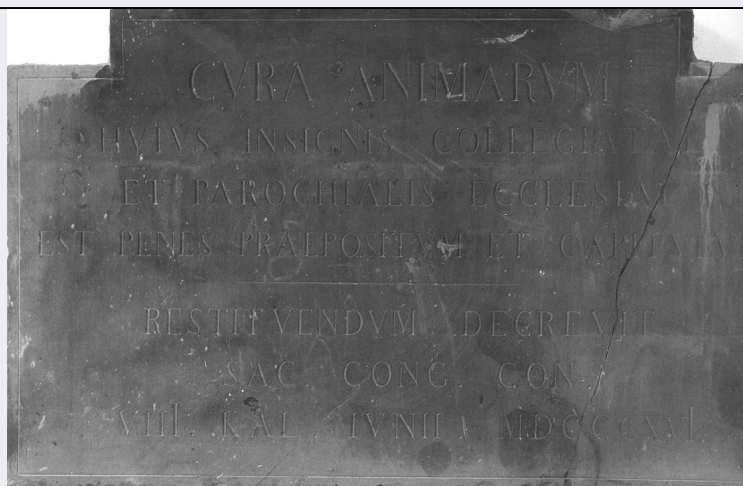 CVRA ANIMARVM
HVIVS INSIGNIS COLLEGIATAE
ET PAROCHIALIS ECCLESIAE
EST PENES PRAEPOSITVM ET CAPITVLVM
RESTITVENDVM DECREVIT
SAC. CONG. CON.
VIII. KAL. IVNII MDCCCXXI.